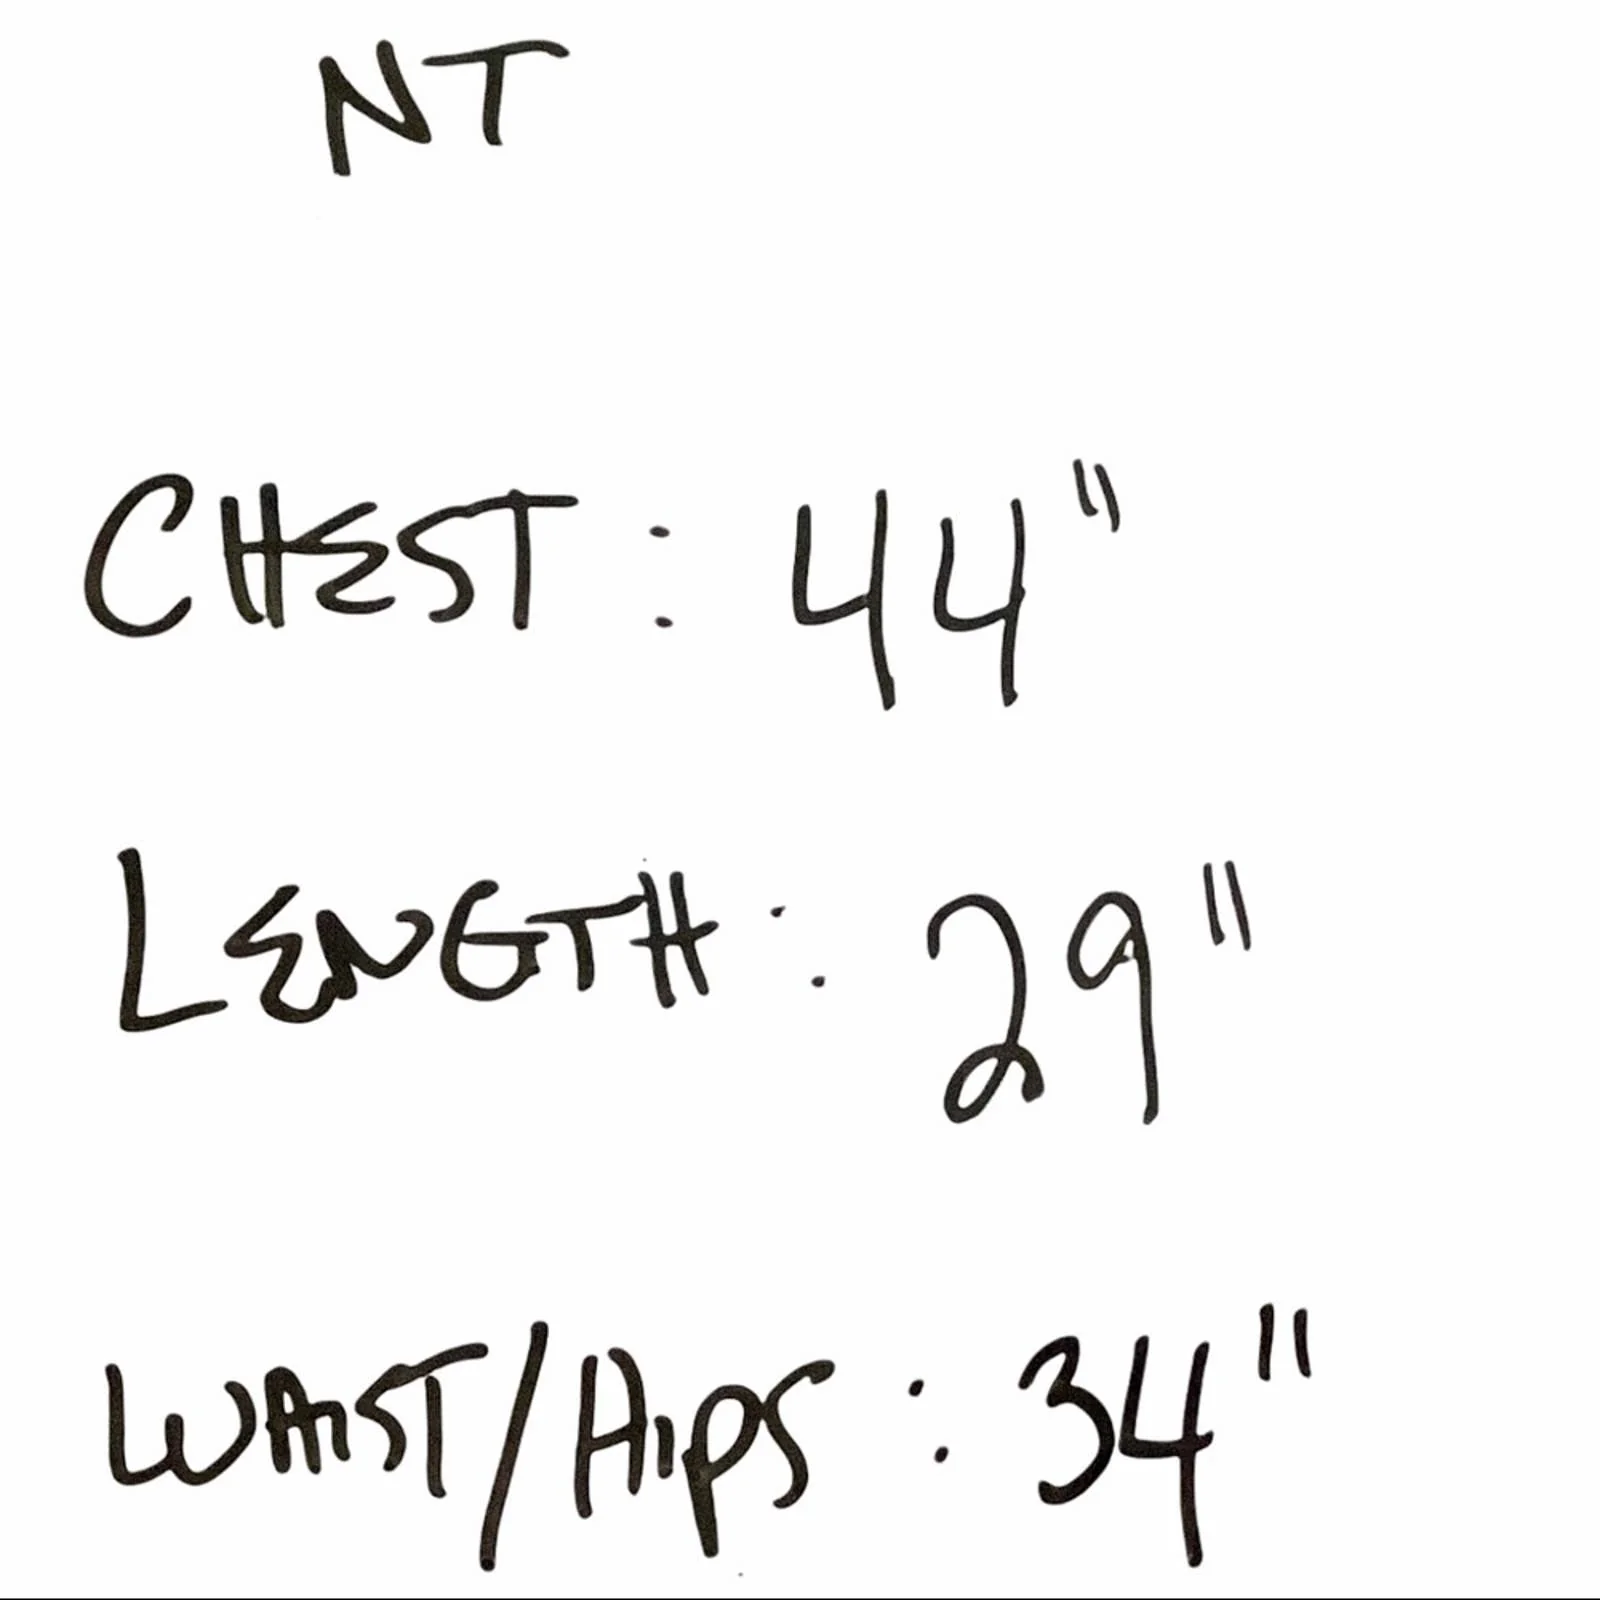 NT
CHEST: 44"
LENGTH: 29"
WAIST/HIPS: 34"